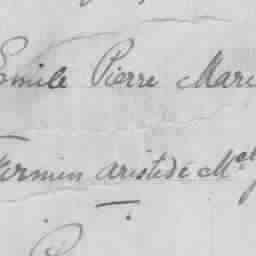 Emile Pierre Marc
Firmin Aristide M